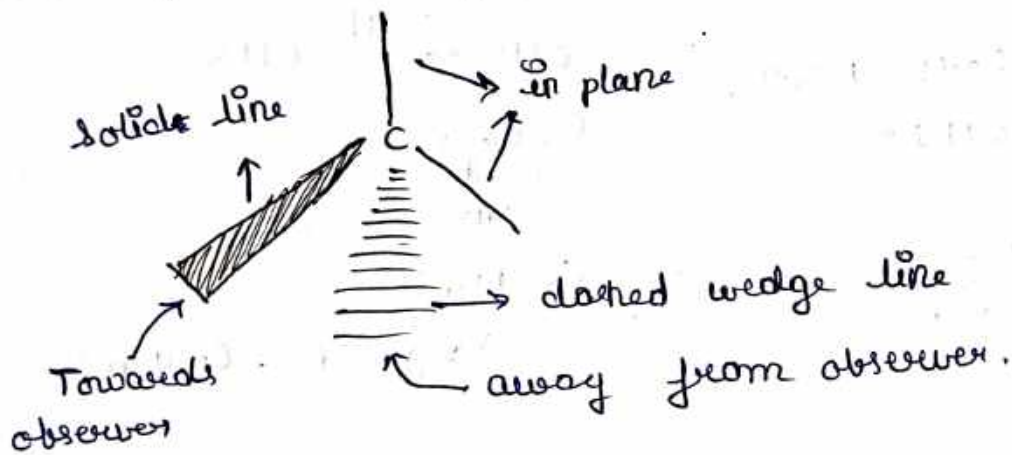 in plane
solide line
C
dashed wedge line
Towards
observer
away from observer.